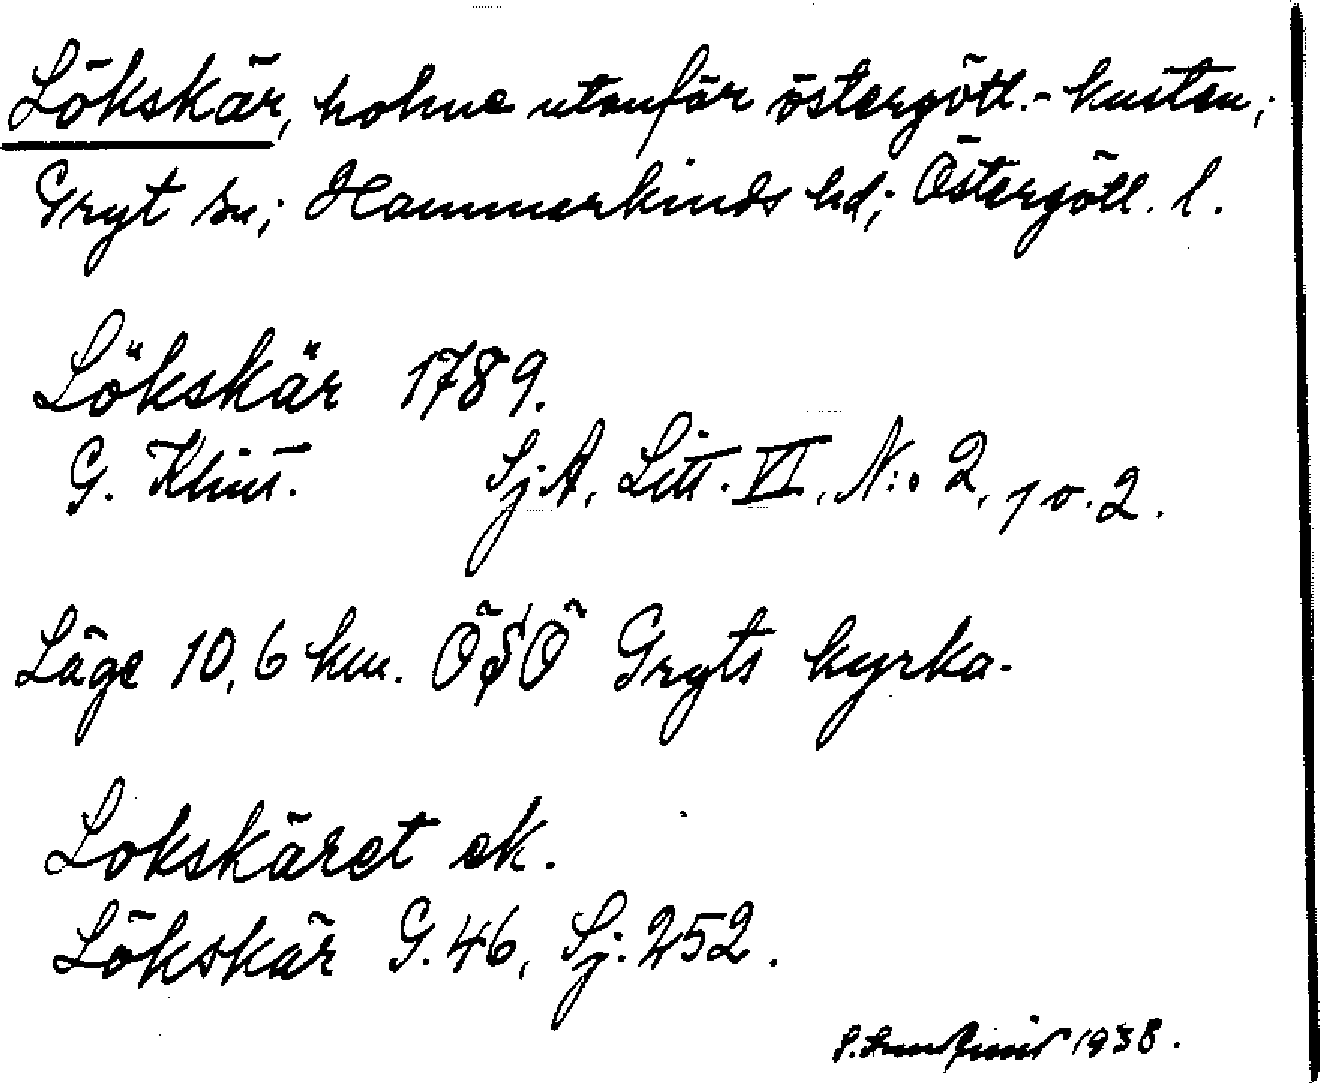 Lökskär, holme utanför östergötl.-kusten;
Gryt sn; Hammarkinds hd; Östergötl. l.
Lökskär 1789.
G. Klint. Sj.A, Litt. VI, N:o 2, 1 o. 2.
Läge 10,6 km. ÖSÖ Gryts kyrka.
Lokskäret ek.
Lökskär G.46, Sj. 252.
1938.